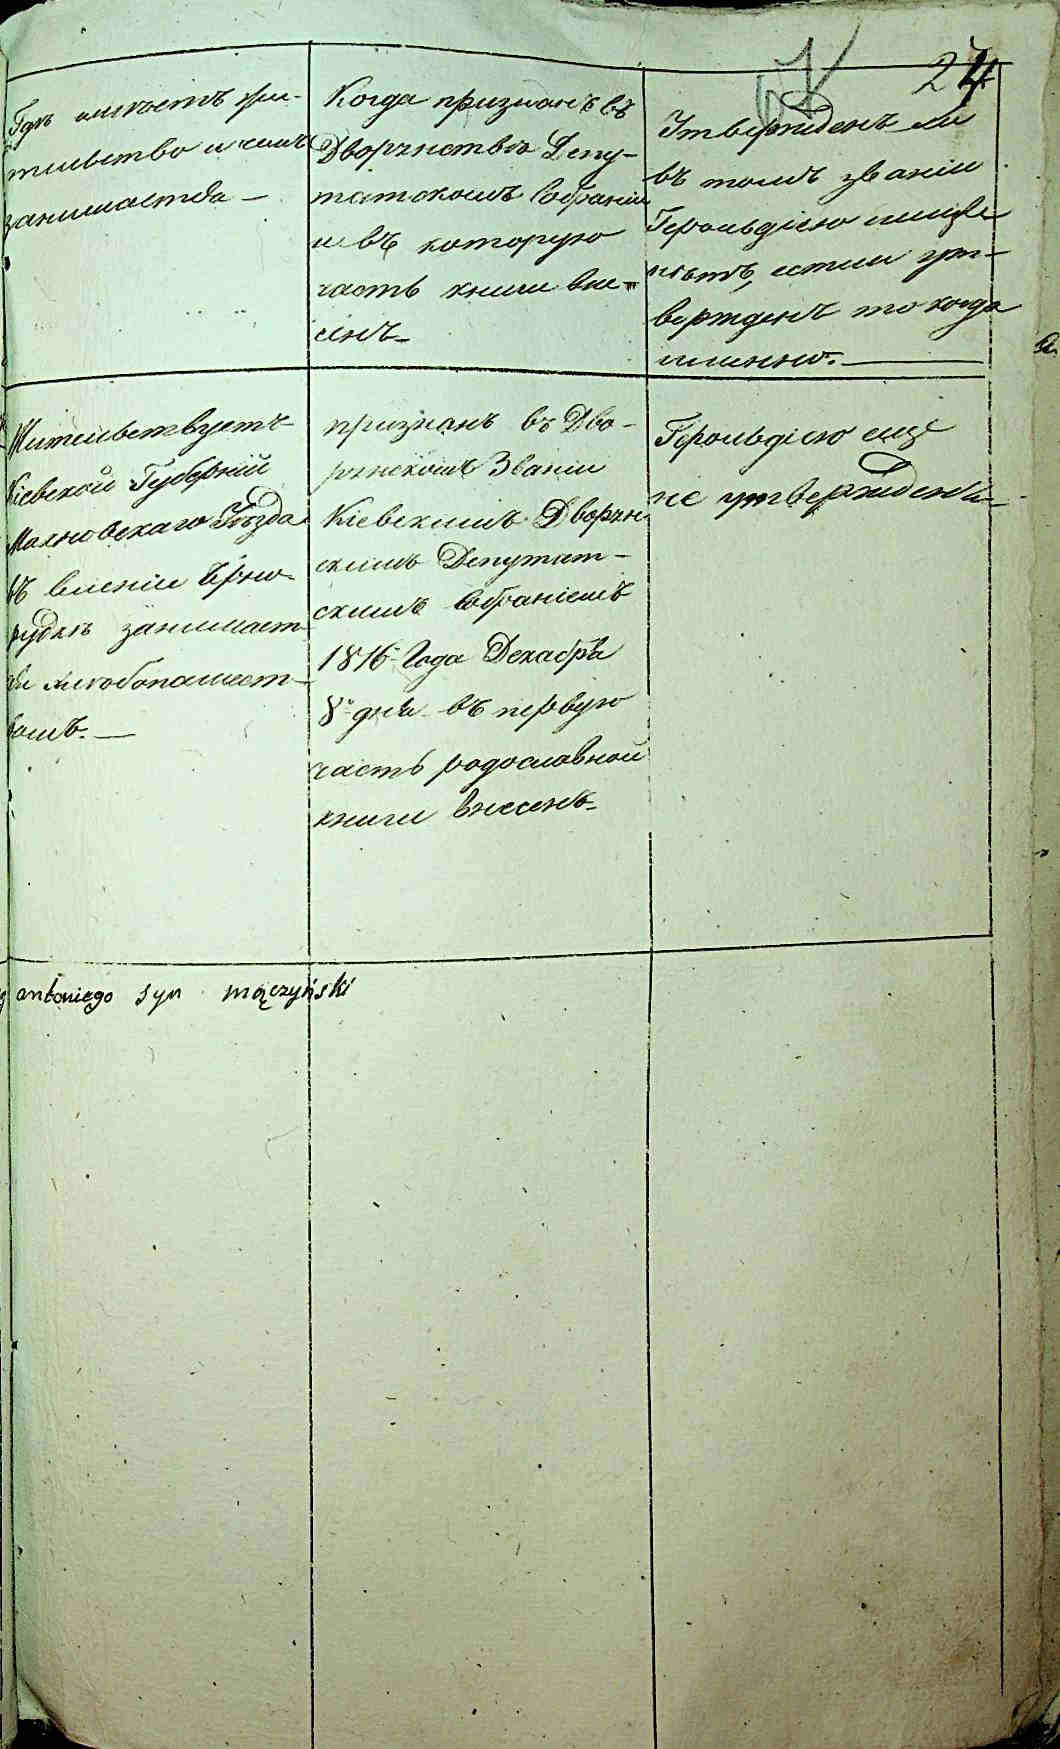 24
Гдѣ имѣетъ жи-
тельство и чемъ
занимается —
Когда признанъ въ
Дворянствѣ Депу-
татскомъ Собраніи
и въ которую
часть книги вне-
сенъ
Утвержденъ ли
въ томъ званіи
Герольдіею или
нѣтъ, если ут-
вержденъ то когда
именно.
Жительствуетъ
Кіевской Губерніи
Махновскаго Уѣзда
въ имѣніи Чорно-
рудкѣ занимает-
ся хлѣбопашест-
вомъ. —
признанъ въ Дво-
рянскомъ Званіи
Кіевскимъ Дворян-
скимъ Депутат-
скимъ Собраніемъ
1816 Года Декабря
8 дня въ первую
часть родословной
книги внесенъ
Герольдіею еще
не утвержденъ
antoniego syn mączyński